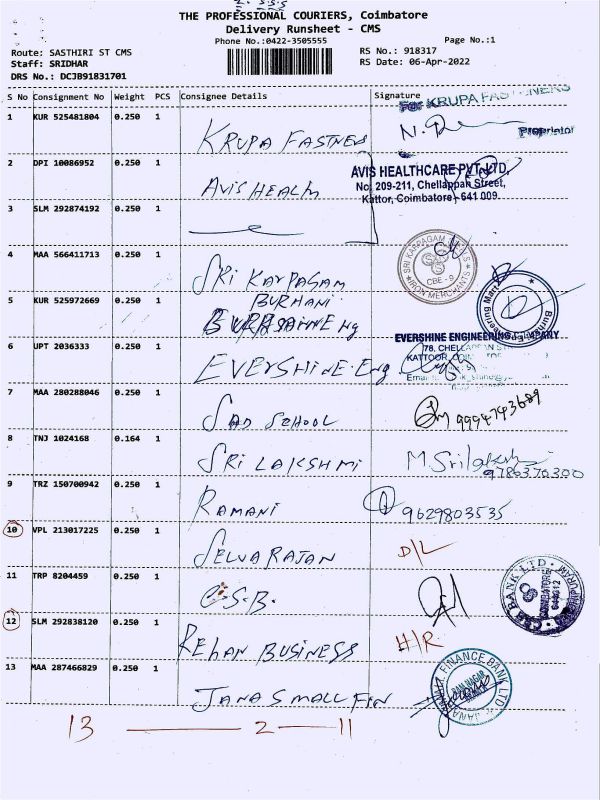 THE PROFESSIONAL COURIERS, Coimbatore
Delivery Runsheet - CMS
Phone No.:0422-3505555
Page No.:1
Route: SASTHIRI ST CMS
RS No.: 918317
Staff: SRIDHAR
RS Date: 06-Apr-2022
DRS No.: DCJB91831701
S No Consignment No Weight PCS Consignee Details Signature
For KRUPA FASTENERS
1 KUR 525481804 0.250 1 KRUPA FASTNERS
Proprietor
2 DPI 10086952 0.250 1 AVIS HEALTH
AVIS HEALTHCARE PVT. LTD,
No. 209-211, Chellappan Street,
Kattor, Coimbatore - 641 009.
3 SLM 292874192 0.250 1
SRI KARPAGAM
IRON MERCHANTS
CBE - 9
4 MAA 566411713 0.250 1 SRI KARPAGAM
5 KUR 525972669 0.250 1 BURHANI
Eng
EVERSHINE ENGINEERING COMPANY
6 UPT 2036333 0.250 1 EVERSHINE Eng
78,
KATTOOR,
7 MAA 280288046 0.250 1 SAD SCHOOL 9994743689
8 TNJ 1024168 0.164 1 SRI LAKSHMI M. Srilakshmi
9786376300
9 TRZ 150700942 0.250 1 RAMANI 9629803535
10 VPL 213017225 0.250 1 SELVARAJAN D/L
11 TRP 8204459 0.250 1 C.S.B.
CSB BANK LTD
COIMBATORE
641012
12 SLM 292838120 0.250 1 REHAN BUSINESS H/R
13 MAA 287466829 0.250 1 JANA SMALL FIN
JANA SMALL FINANCE BANK LTD
13 — 2 — 11